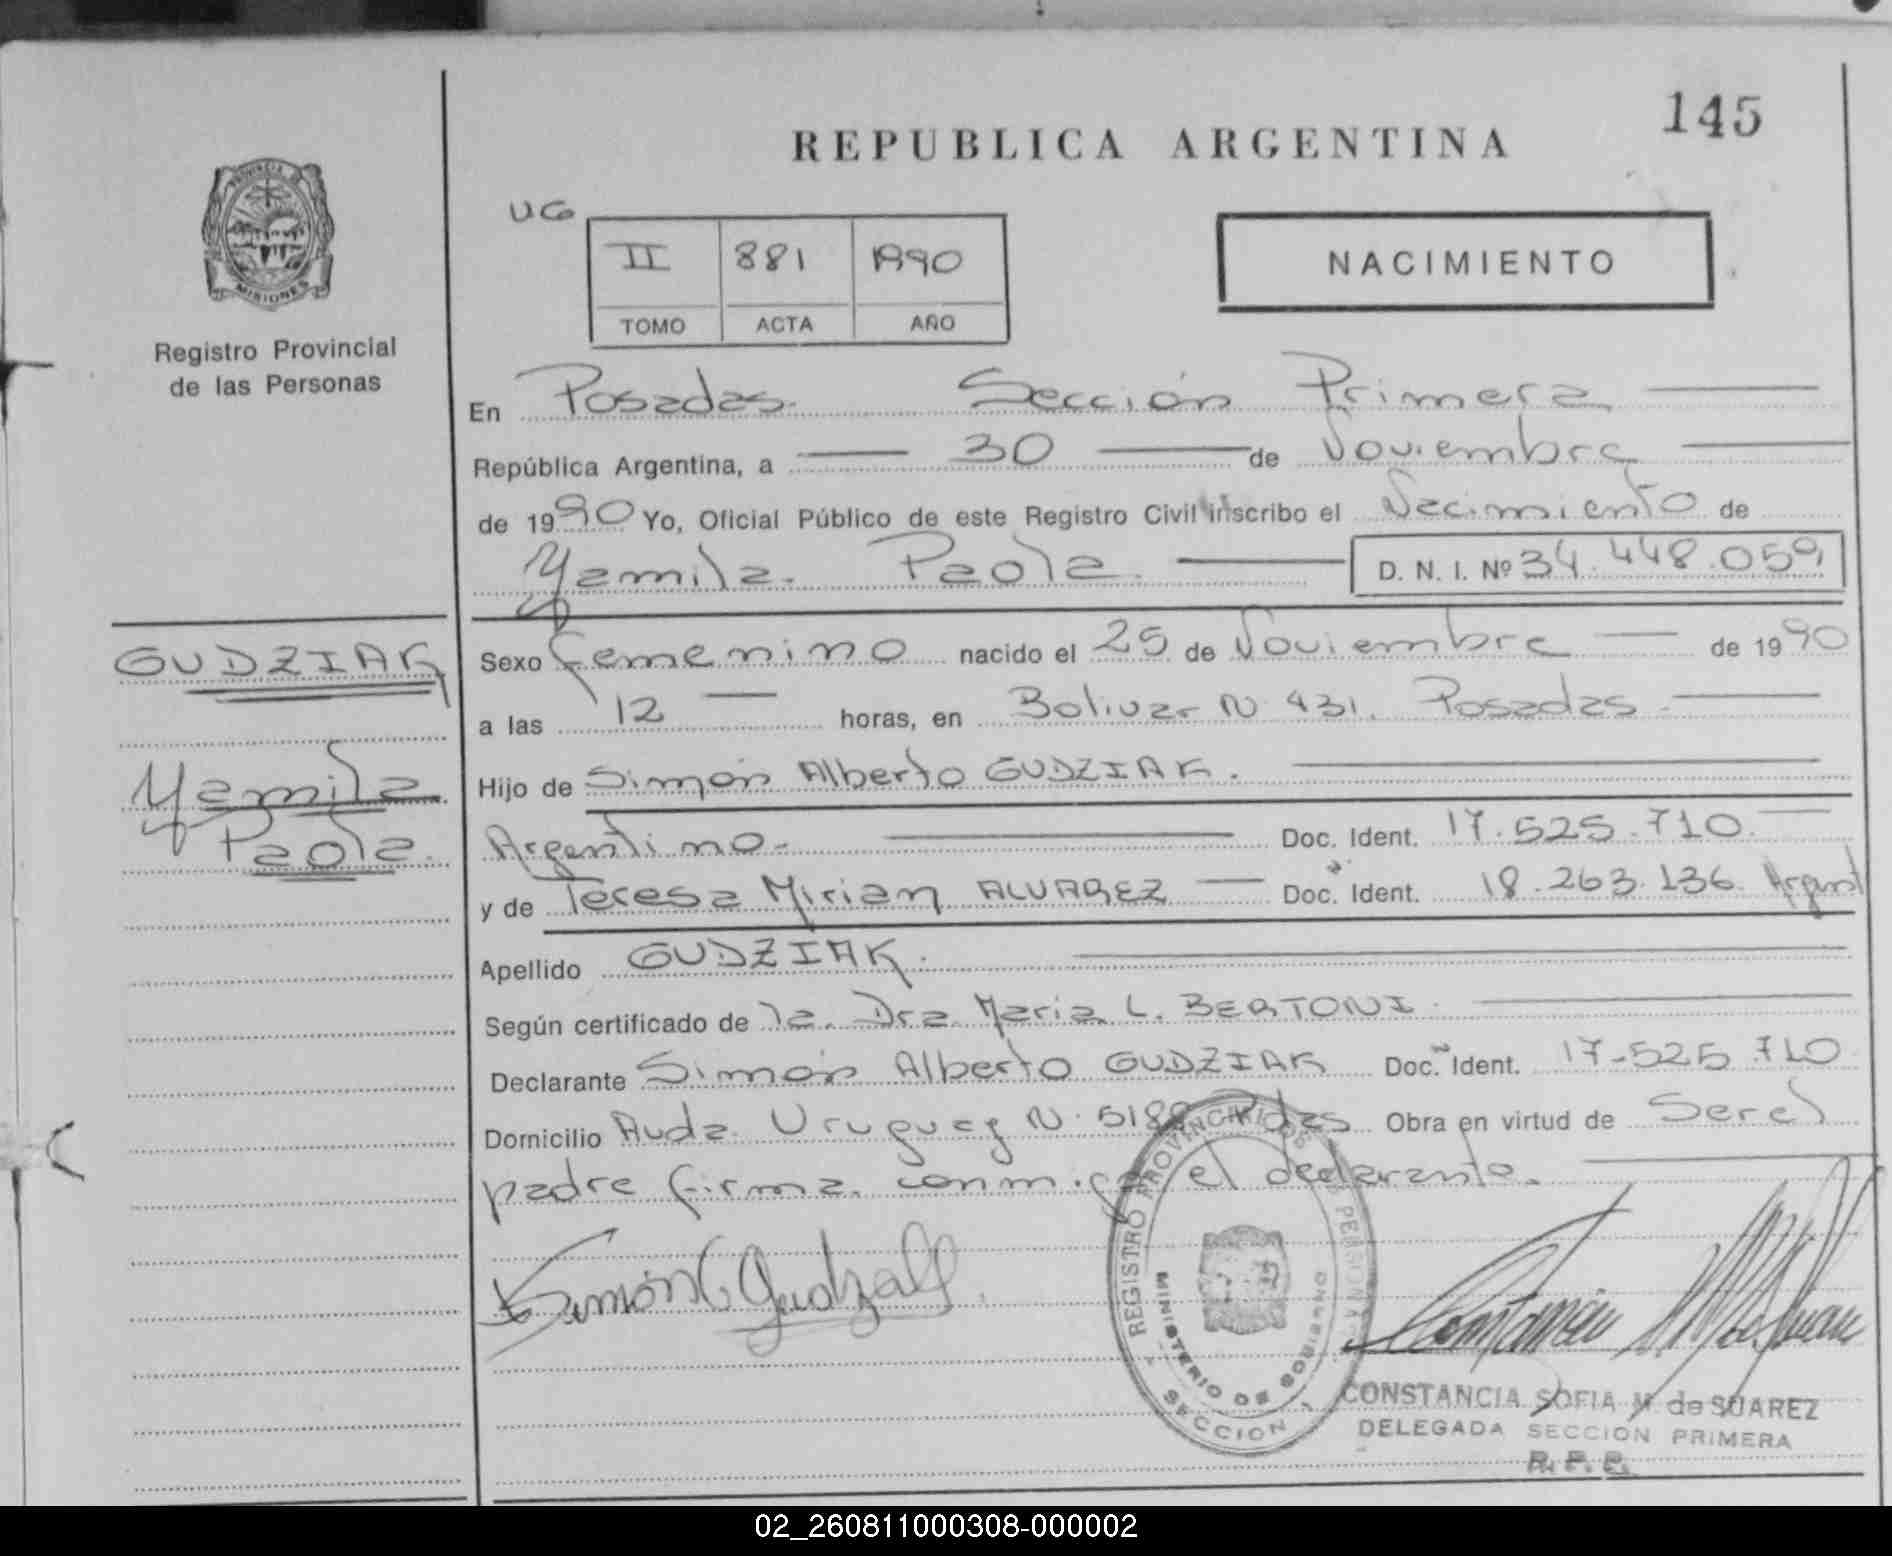 145
REPUBLICA ARGENTINA
PROVINCIA DE
MISIONES
Registro Provincial
de las Personas
UG
II 881 1990
TOMO ACTA AÑO
NACIMIENTO
En Posadas. Sección Primera
República Argentina, a 30 de Noviembre
de 1990 Yo, Oficial Público de este Registro Civil inscribo el Nacimiento de
Yamila. Paola. D. N. I. Nº 34.448.059
GUDZIAK
Yamila
Paola.
Sexo femenino nacido el 25 de Noviembre de 1990
a las 12 horas, en Bolivar N 431. Posadas
Hijo de Simón Alberto GUDZIAK.
Argentino. Doc. Ident. 17.525.710
y de Teresa Mirian ALVAREZ Doc. Ident. 18.263.136. Argent
Apellido GUDZIAK.
Según certificado de la. Dra Maria L. BERTONI.
Declarante Simón Alberto GUDZIAK Doc. Ident. 17-525 710
Domicilio Avda. Uruguay N. 5188 Pdas Obra en virtud de Ser el
padre firma. conmigo el declarante.
REGISTRO PROVINCIAL DE LAS PERSONAS
MINISTERIO DE GOBIERNO
SECCION 1
CONSTANCIA SOFIA M. de SUAREZ
DELEGADA SECCION PRIMERA
R. P. P.
02_260811000308-000002